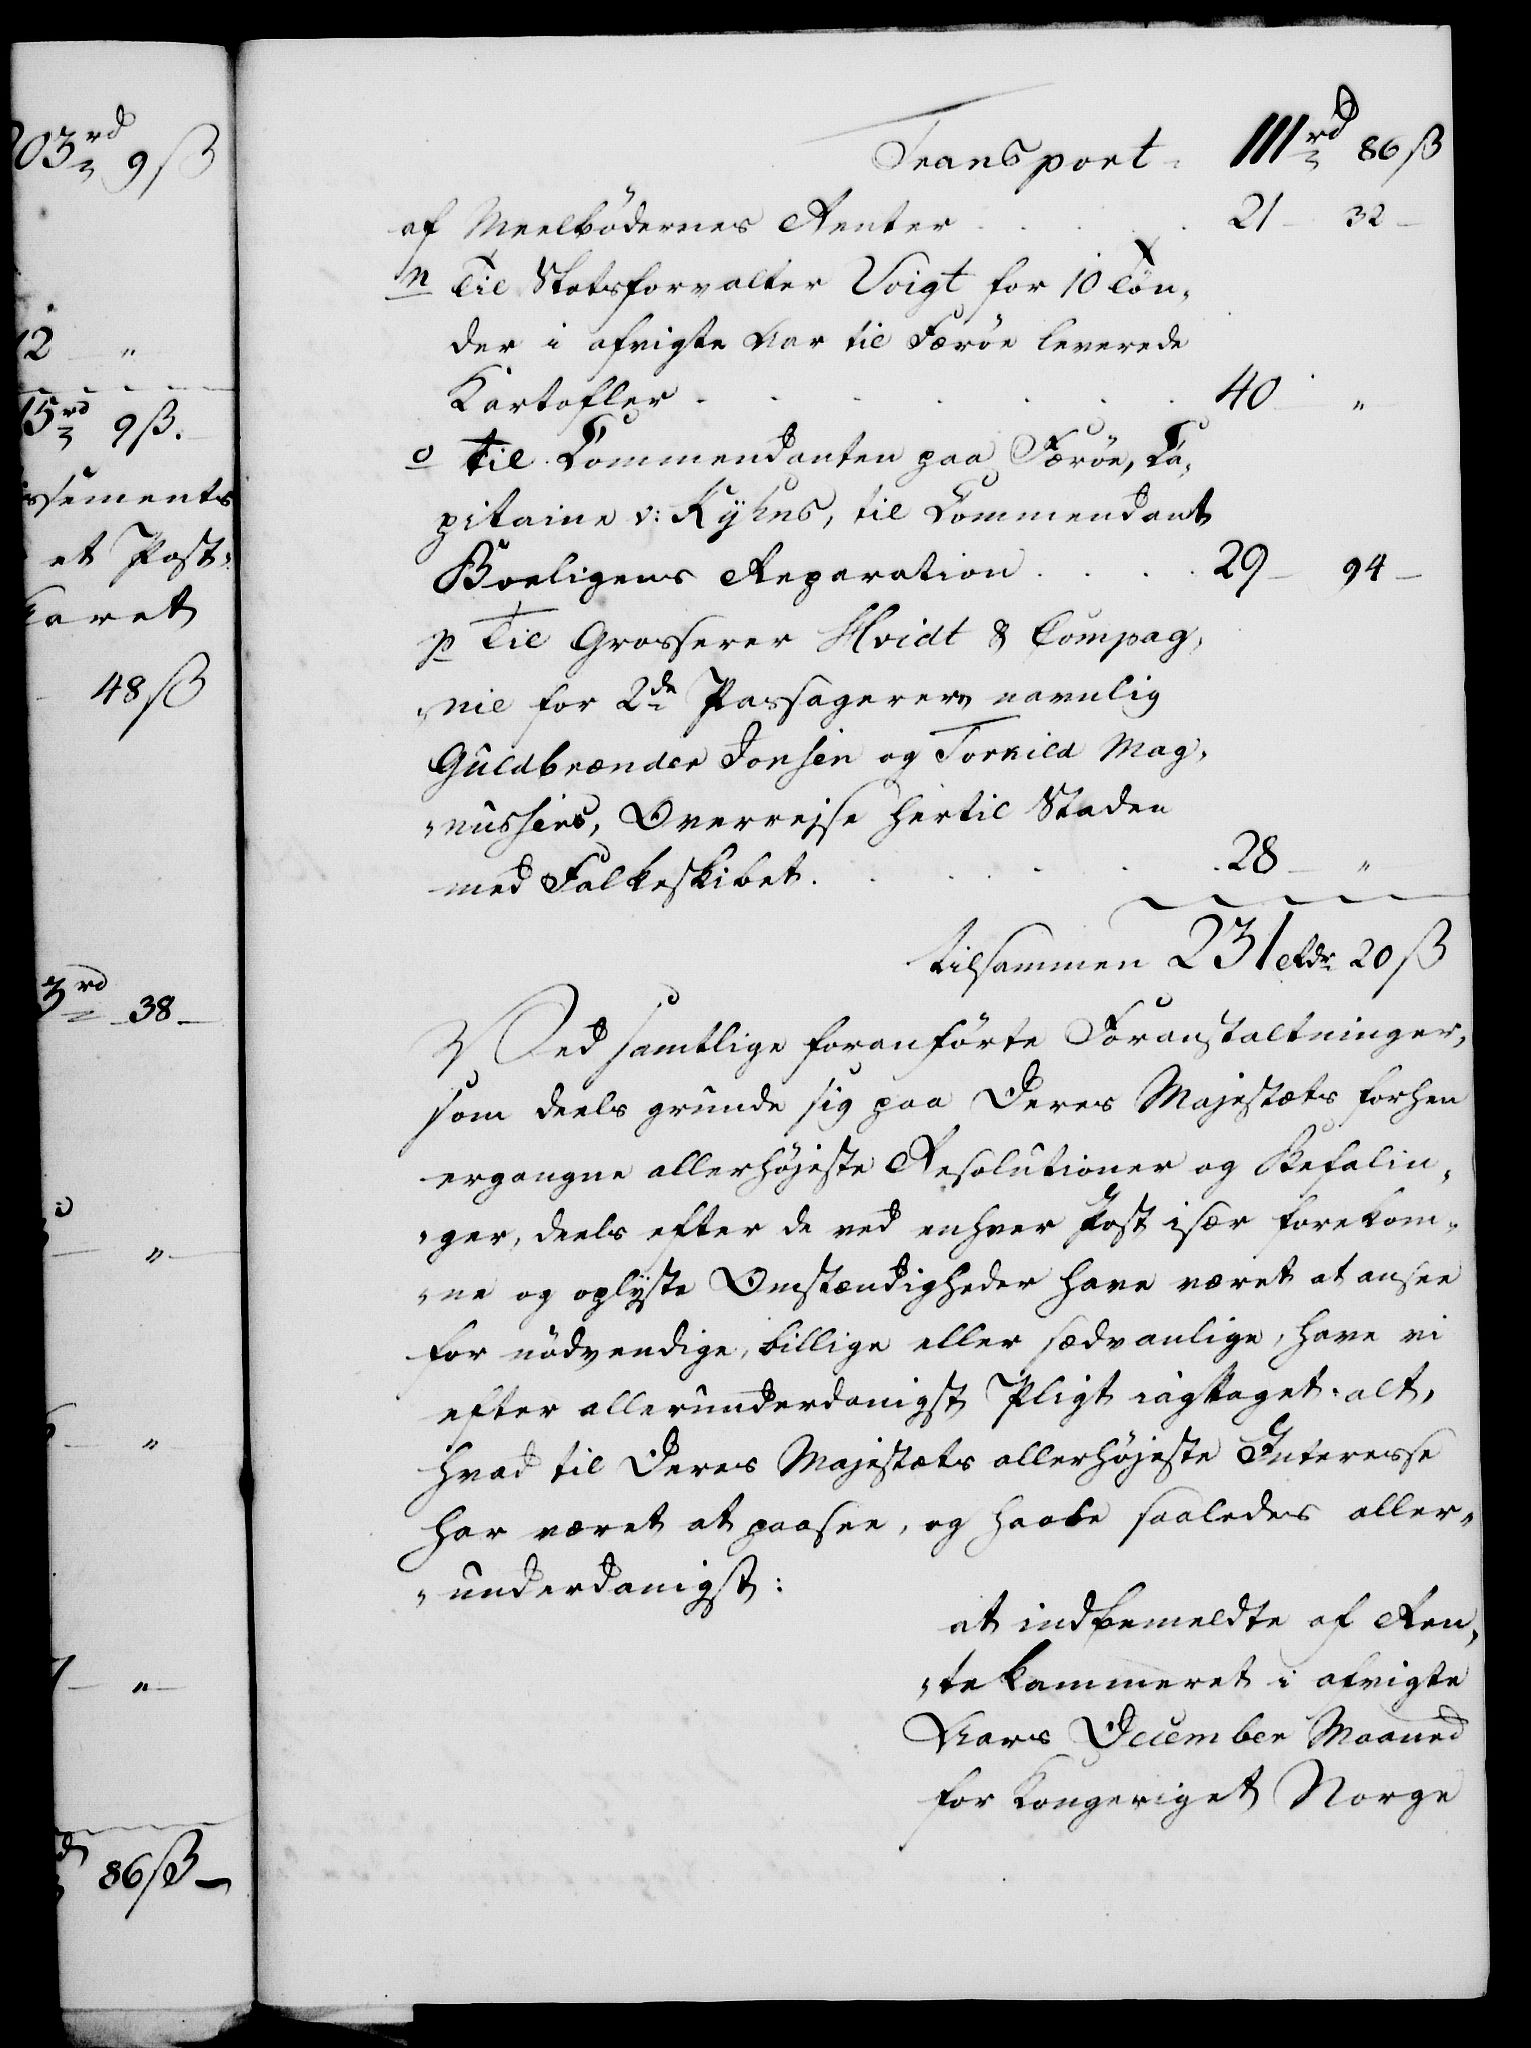 203rd 9 ß
12 "
15rd 9 ß.
ssements
et Post-
karet
48 ß
3rd 38
"
"
"
86 ß
Transport 111rd 86 ß
af Meelbödernes Renter . . . 21 - 32 -
n Til Slotsforvalter Voigt for 10 Tön-
der i afvigte Aar til Færöe leverede
Kartofler . . . . . . 40 "
o Til Commendanten paa Færöe, Ca-
pitaine v: Ryhns, til Commendant
Boeligens Reparation . . . . 29 - 94 -
p Til Grosserer Hvidt & Compag-
nie for 2de Passagerers navnlig
Guldbrander Jonsen og Torkild Mag-
nussens, Overrejse hertil Staden
med Falkeskibet . . . . . 28 - "
tilsammen 231 Rdr 20 ß
Ved samtlige foranförte Foranstaltninger,
som deels grunde sig paa Deres Majestæts forhen
ergangne allerhöjeste Resolutioner og Befalin-
ger, deels efter de ved enhver Post især forekom-
ne og oplyste Omstændigheder have været at ansee
for nödvendige, billige eller sædvanlige, have vi
efter allerunderdanigst Pligt iagttaget alt,
hvad til Deres Majestæts allerhöjeste Interesse
har været at paasee, og haabe saaledes aller-
underdanigst:
at indbemeldte af Ren-
tekammeret i afvigte
Aars December Maaned
for Kongeriget Norge